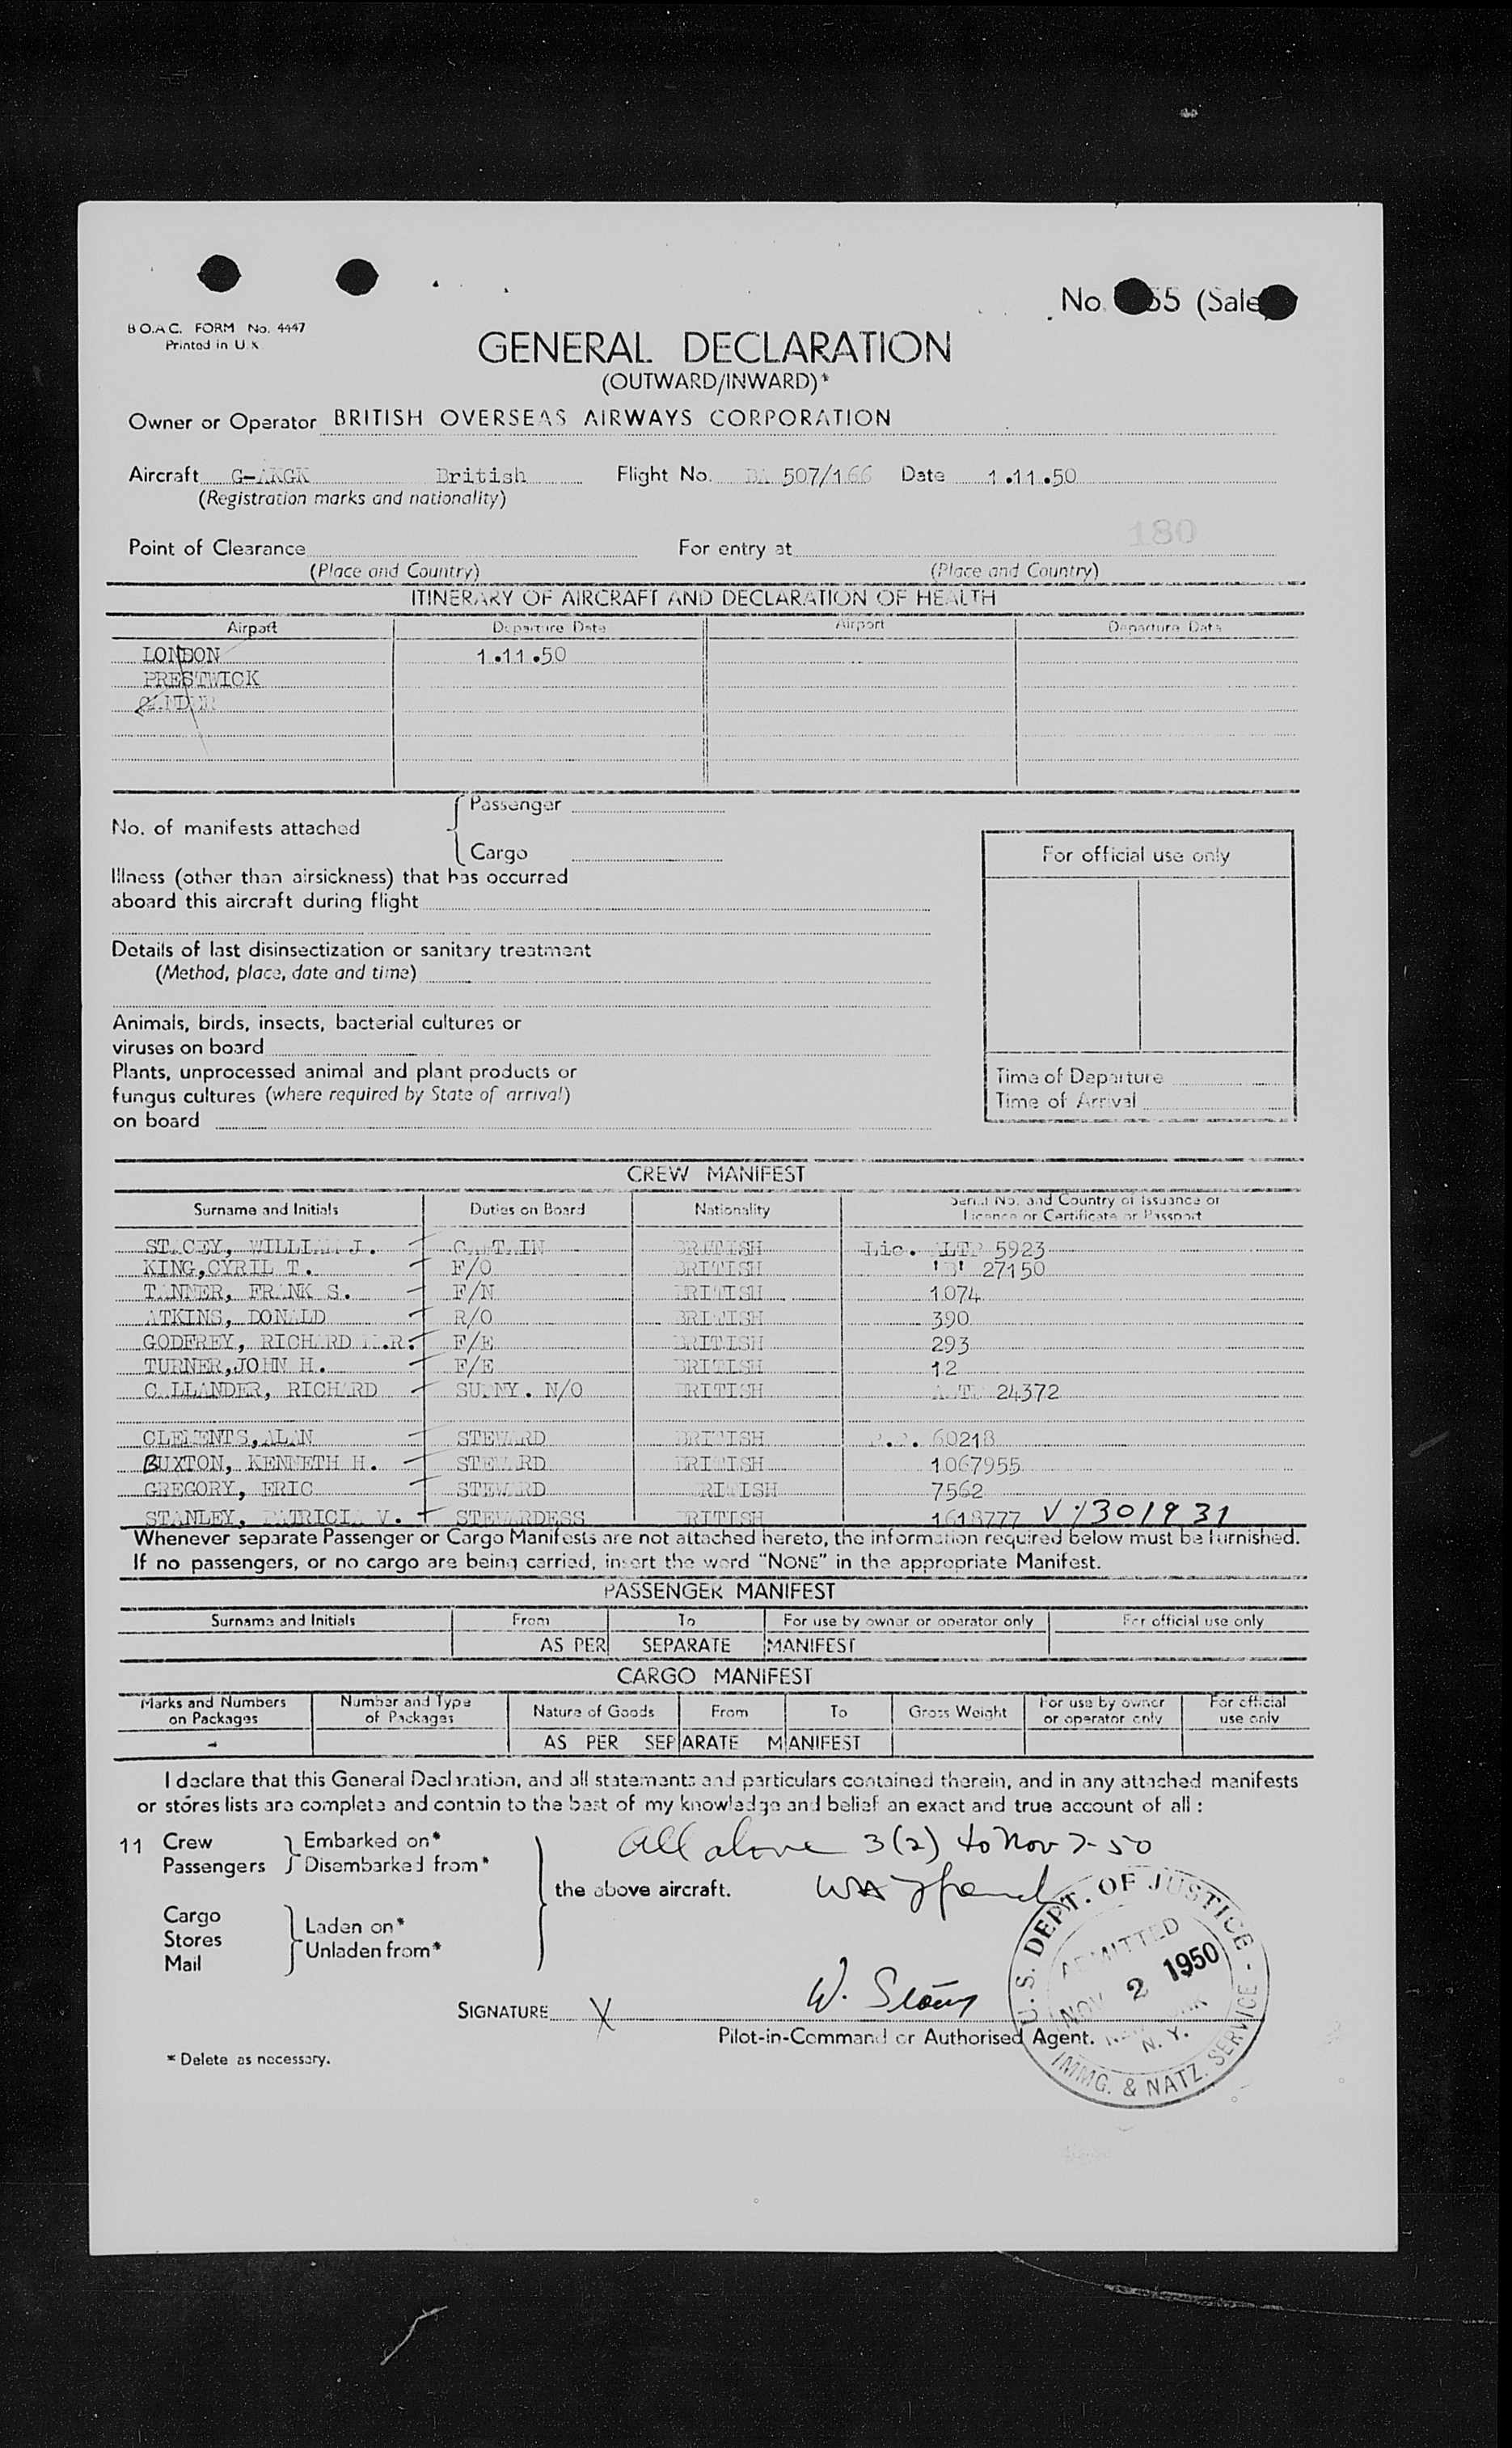 No. 55 (Sale
B.O.A.C. FORM No. 4447
Printed in U.K.
GENERAL DECLARATION
(OUTWARD/INWARD)*
Owner or Operator BRITISH OVERSEAS AIRWAYS CORPORATION
Aircraft G-AKGK British Flight No. BA 507/166 Date 1.11.50
(Registration marks and nationality)
180
Point of Clearance For entry at
(Place and Country) (Place and Country)
ITINERARY OF AIRCRAFT AND DECLARATION OF HEALTH
Airport Departure Date Airport Departure Date
LONDON 1.11.50
PRESTWICK
GANDER
No. of manifests attached { Passenger
Cargo
Illness (other than airsickness) that has occurred
aboard this aircraft during flight
Details of last disinsectization or sanitary treatment
(Method, place, date and time)
Animals, birds, insects, bacterial cultures or
viruses on board
Plants, unprocessed animal and plant products or
fungus cultures (where required by State of arrival)
on board
For official use only
Time of Departure
Time of Arrival
CREW MANIFEST
Surname and Initials Duties on Board Nationality Serial No. and Country of Issuance of
Licence or Certificate or Passport
STACEY, WILLIAM J. CAPTAIN BRITISH Lic. ALTP 5923
KING,CYRIL T. F/O BRITISH 'B' 27150
TANNER, FRANK S. F/N BRITISH 1074
ATKINS, DONALD R/O BRITISH 390
GODFREY, RICHARD .R. F/E BRITISH 293
TURNER,JOHN H. F/E BRITISH 12
CALLANDER, RICHARD N/O BRITISH 24372
CLEMENTS,ALAN STEWARD BRITISH P.P. 60218
BUXTON, KENNETH H. STEWARD BRITISH 1067955
GREGORY, ERIC STEWARD BRITISH 7562
STANLEY, PATRICIA V. STEWARDESS BRITISH 1618777 V 301931
Whenever separate Passenger or Cargo Manifests are not attached hereto, the information required below must be furnished.
If no passengers, or no cargo are being carried, insert the word "NONE" in the appropriate Manifest.
PASSENGER MANIFEST
Surname and Initials From To For use by owner or operator only For official use only
AS PER SEPARATE MANIFEST
CARGO MANIFEST
Marks and Numbers on Packages Number and Type of Packages Nature of Goods From To Gross Weight For use by owner or operator only For official use only
AS PER SEPARATE MANIFEST
I declare that this General Declaration, and all statements and particulars contained therein, and in any attached manifests
or stores lists are complete and contain to the best of my knowledge and belief an exact and true account of all :
11 Crew } Embarked on*
Passengers } Disembarked from*
All above 3(2) to Nov 7-50
the above aircraft.
Cargo
Stores } Laden on*
Mail } Unladen from*
U. S. DEPT. OF JUSTICE - IMMG. & NATZ. SERVICE
ADMITTED
NOV 2 1950
NEW YORK
N. Y.
SIGNATURE X W. Stacey
Pilot-in-Command or Authorised Agent.
* Delete as necessary.